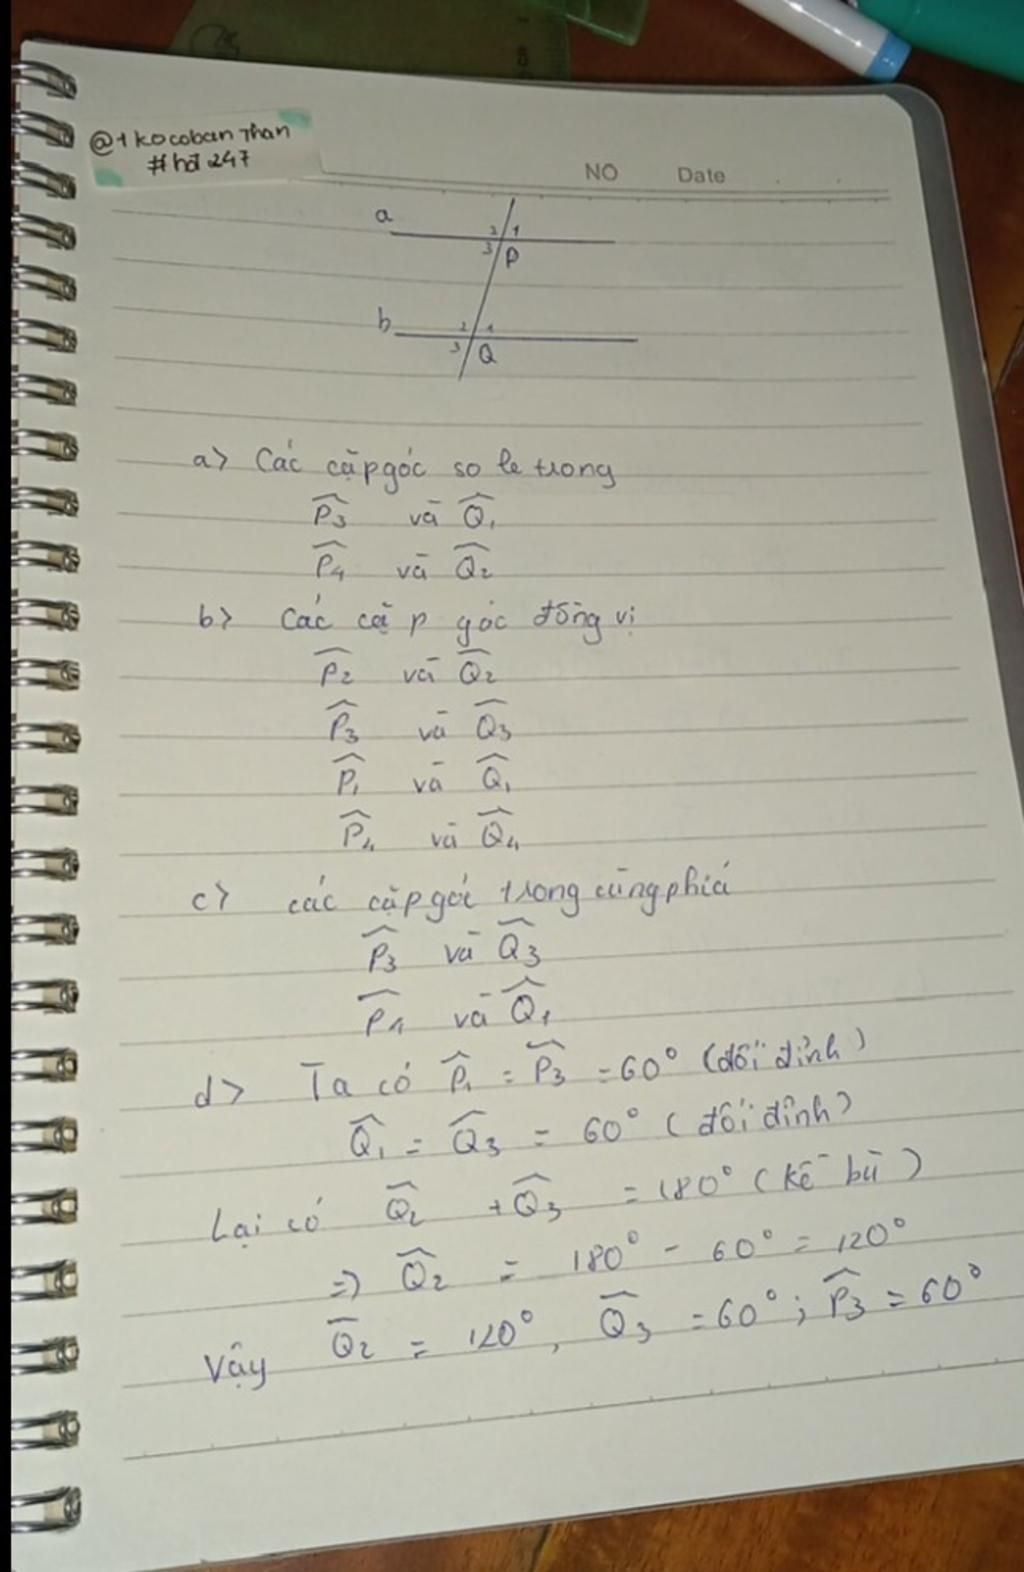 @1kocobanThan
#hđ247
NO Date
a
2 1
3 P
b
2 1
3 Q
a> Các cặp góc so le trong
P̂₃ và Q̂₁
P̂₄ và Q̂₂
b> Các cặp góc đồng vị
P̂₂ và Q̂₂
P̂₃ và Q̂₃
P̂₁ và Q̂₁
P̂₄ và Q̂₄
c> các cặp góc trong cùng phía
P̂₃ và Q̂₃
P̂₁ và Q̂₁
d> Ta có P̂₁ = P̂₃ = 60° (đối đỉnh)
Q̂₁ = Q̂₃ = 60° (đối đỉnh)
Lại có Q̂₂ + Q̂₃ = 180° (kề bù)
=> Q̂₂ = 180° - 60° = 120°
Vậy Q̂₂ = 120°, Q̂₃ = 60°; P̂₃ = 60°